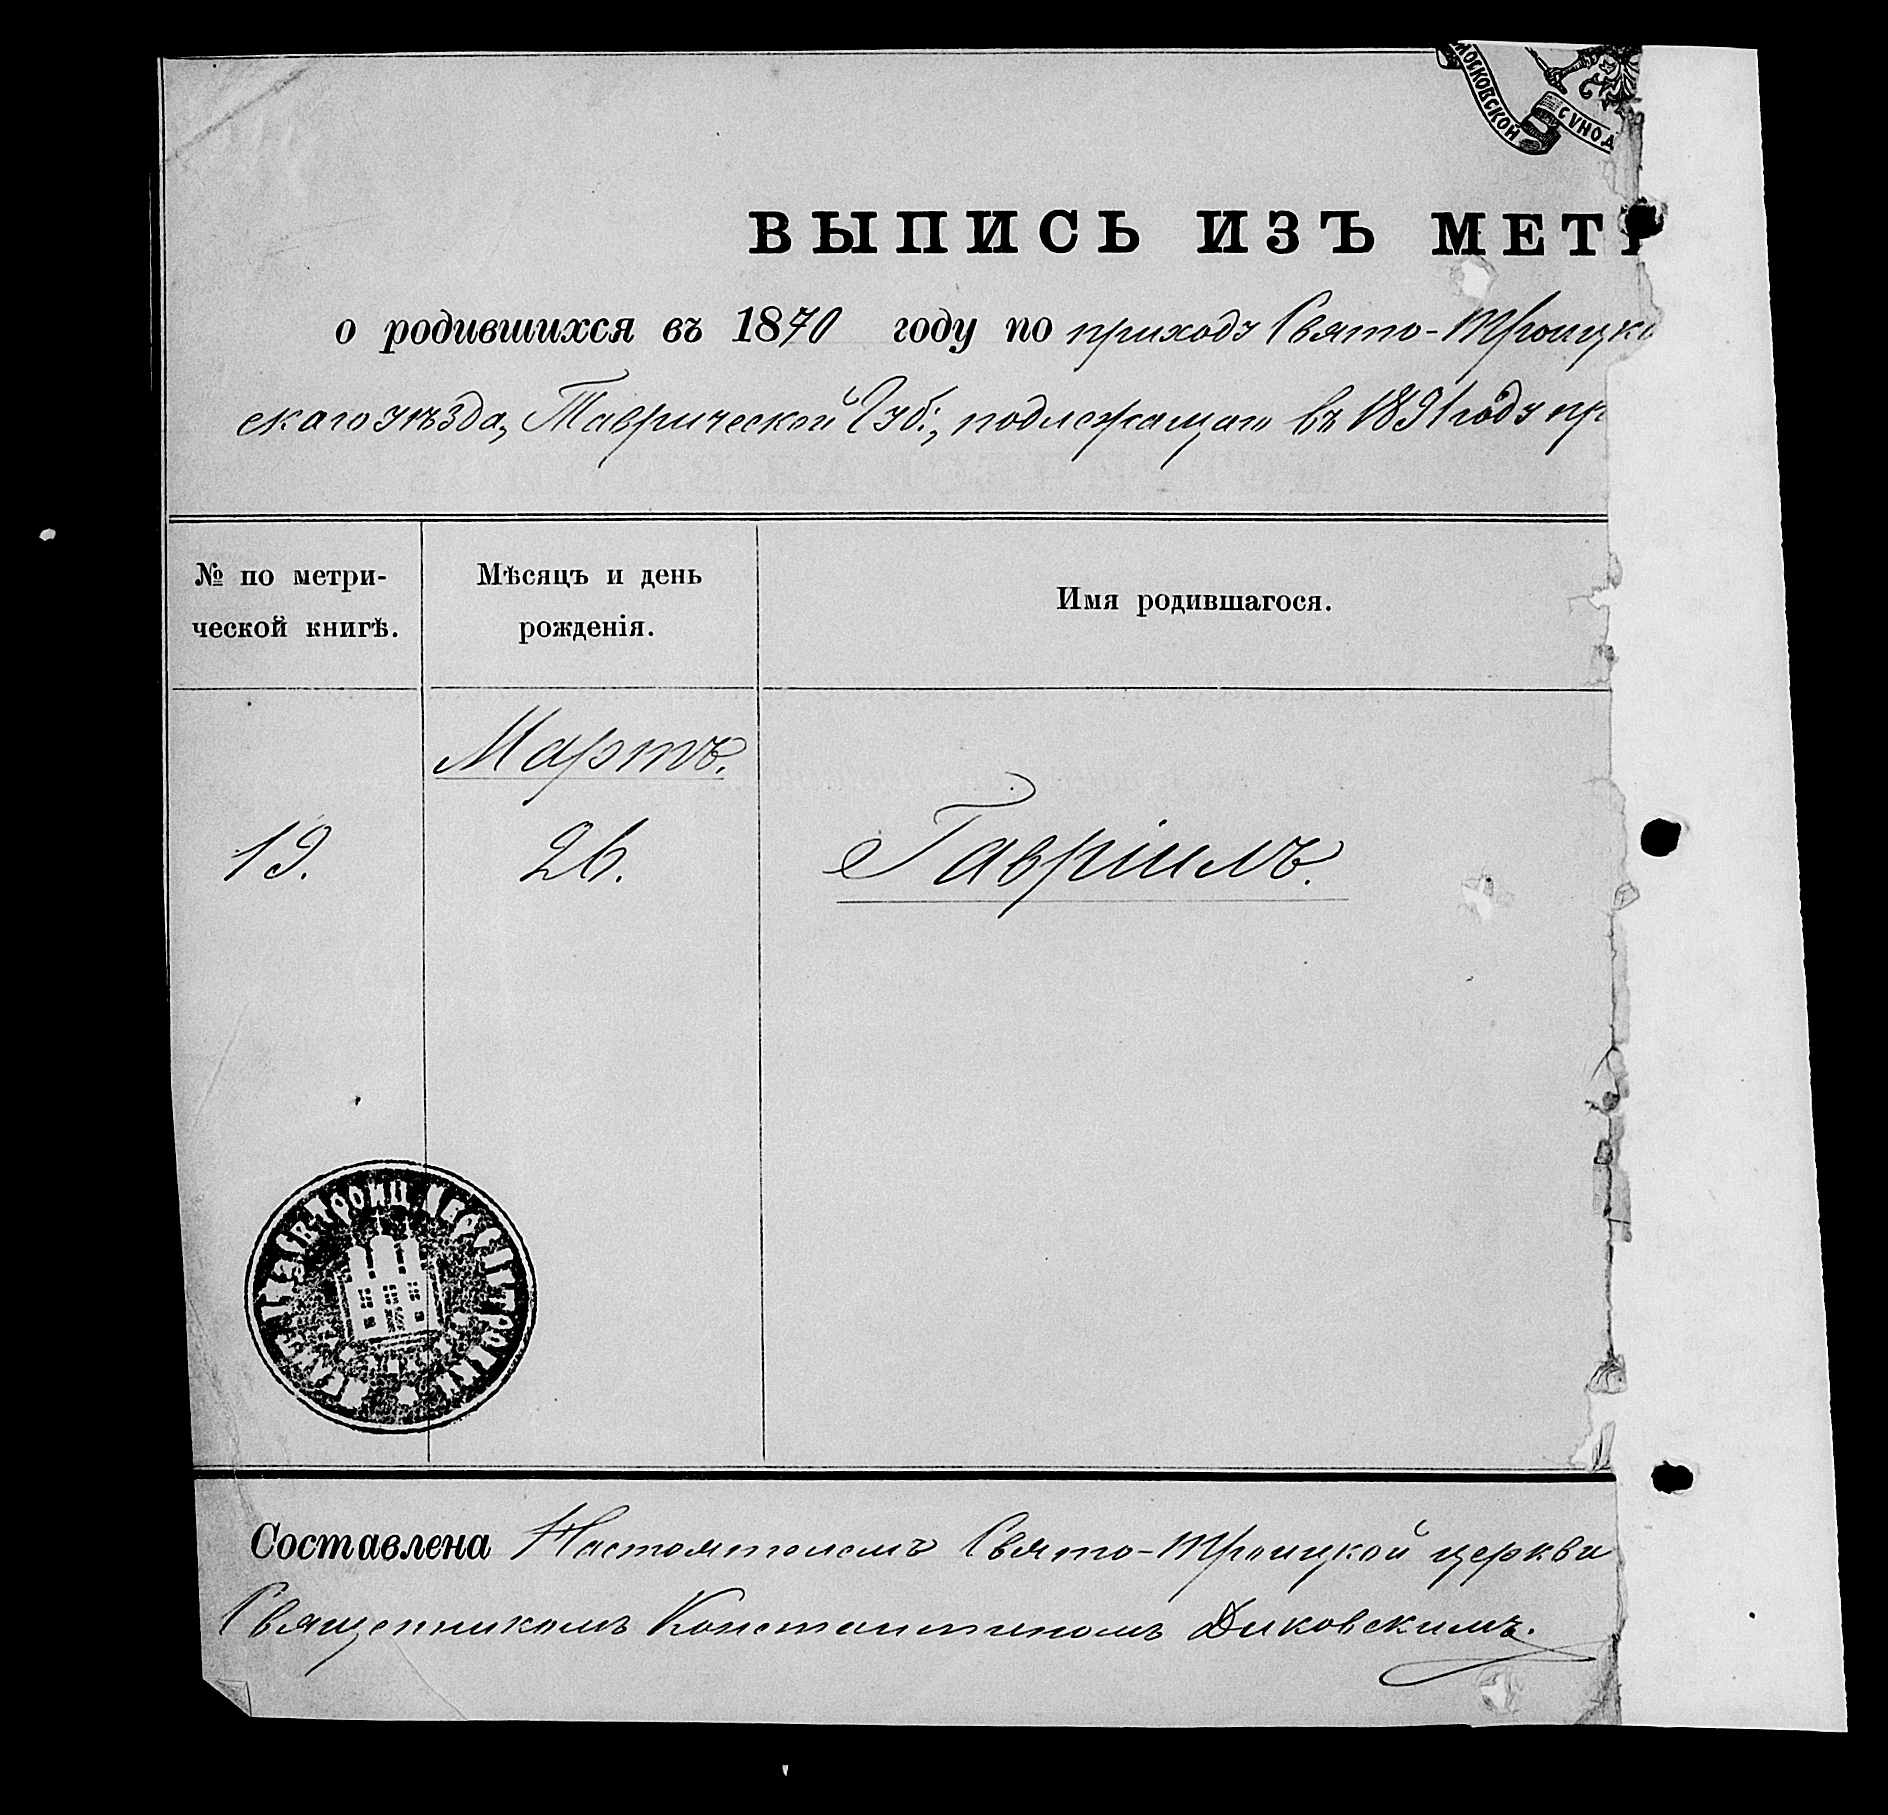 МОСКОВСКОЙ СѴНОД
ВЫПИСЬ ИЗЪ МЕТР
о родившихся въ 1870 году по приходу Свято-Троицко
скаго уѣзда, Таврической Губ:, подлежащаго въ 1891 году пр
№ по метри-
ческой книгѣ.
Мѣсяцъ и день
рожденія.
Имя родившагося.
Мартъ.
19.
26.
Гавріилъ.
Составлена Настоятелемъ Свято-Троицкой церкви
Священникомъ Константиномъ Диковскимъ.